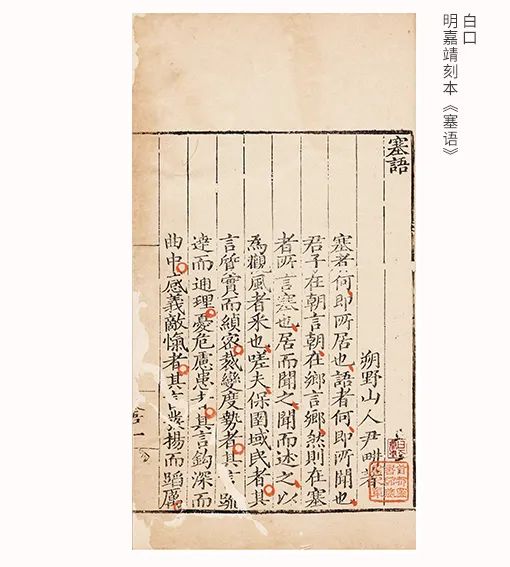 白口
明嘉靖刻本《塞语》
塞語
朔野山人尹畊著
塞者何即所居也語者何即所聞也
君子在朝言朝在鄉言鄉然則在塞
者所言塞也居而聞之聞而述之以
為觀風者釆也嗟夫保圉域民者其
言管實而縝密裁變度勢者其言
達而通理憂危慮患者其言鈎深而
曲中感義敵愾者其言揚而蹈厲